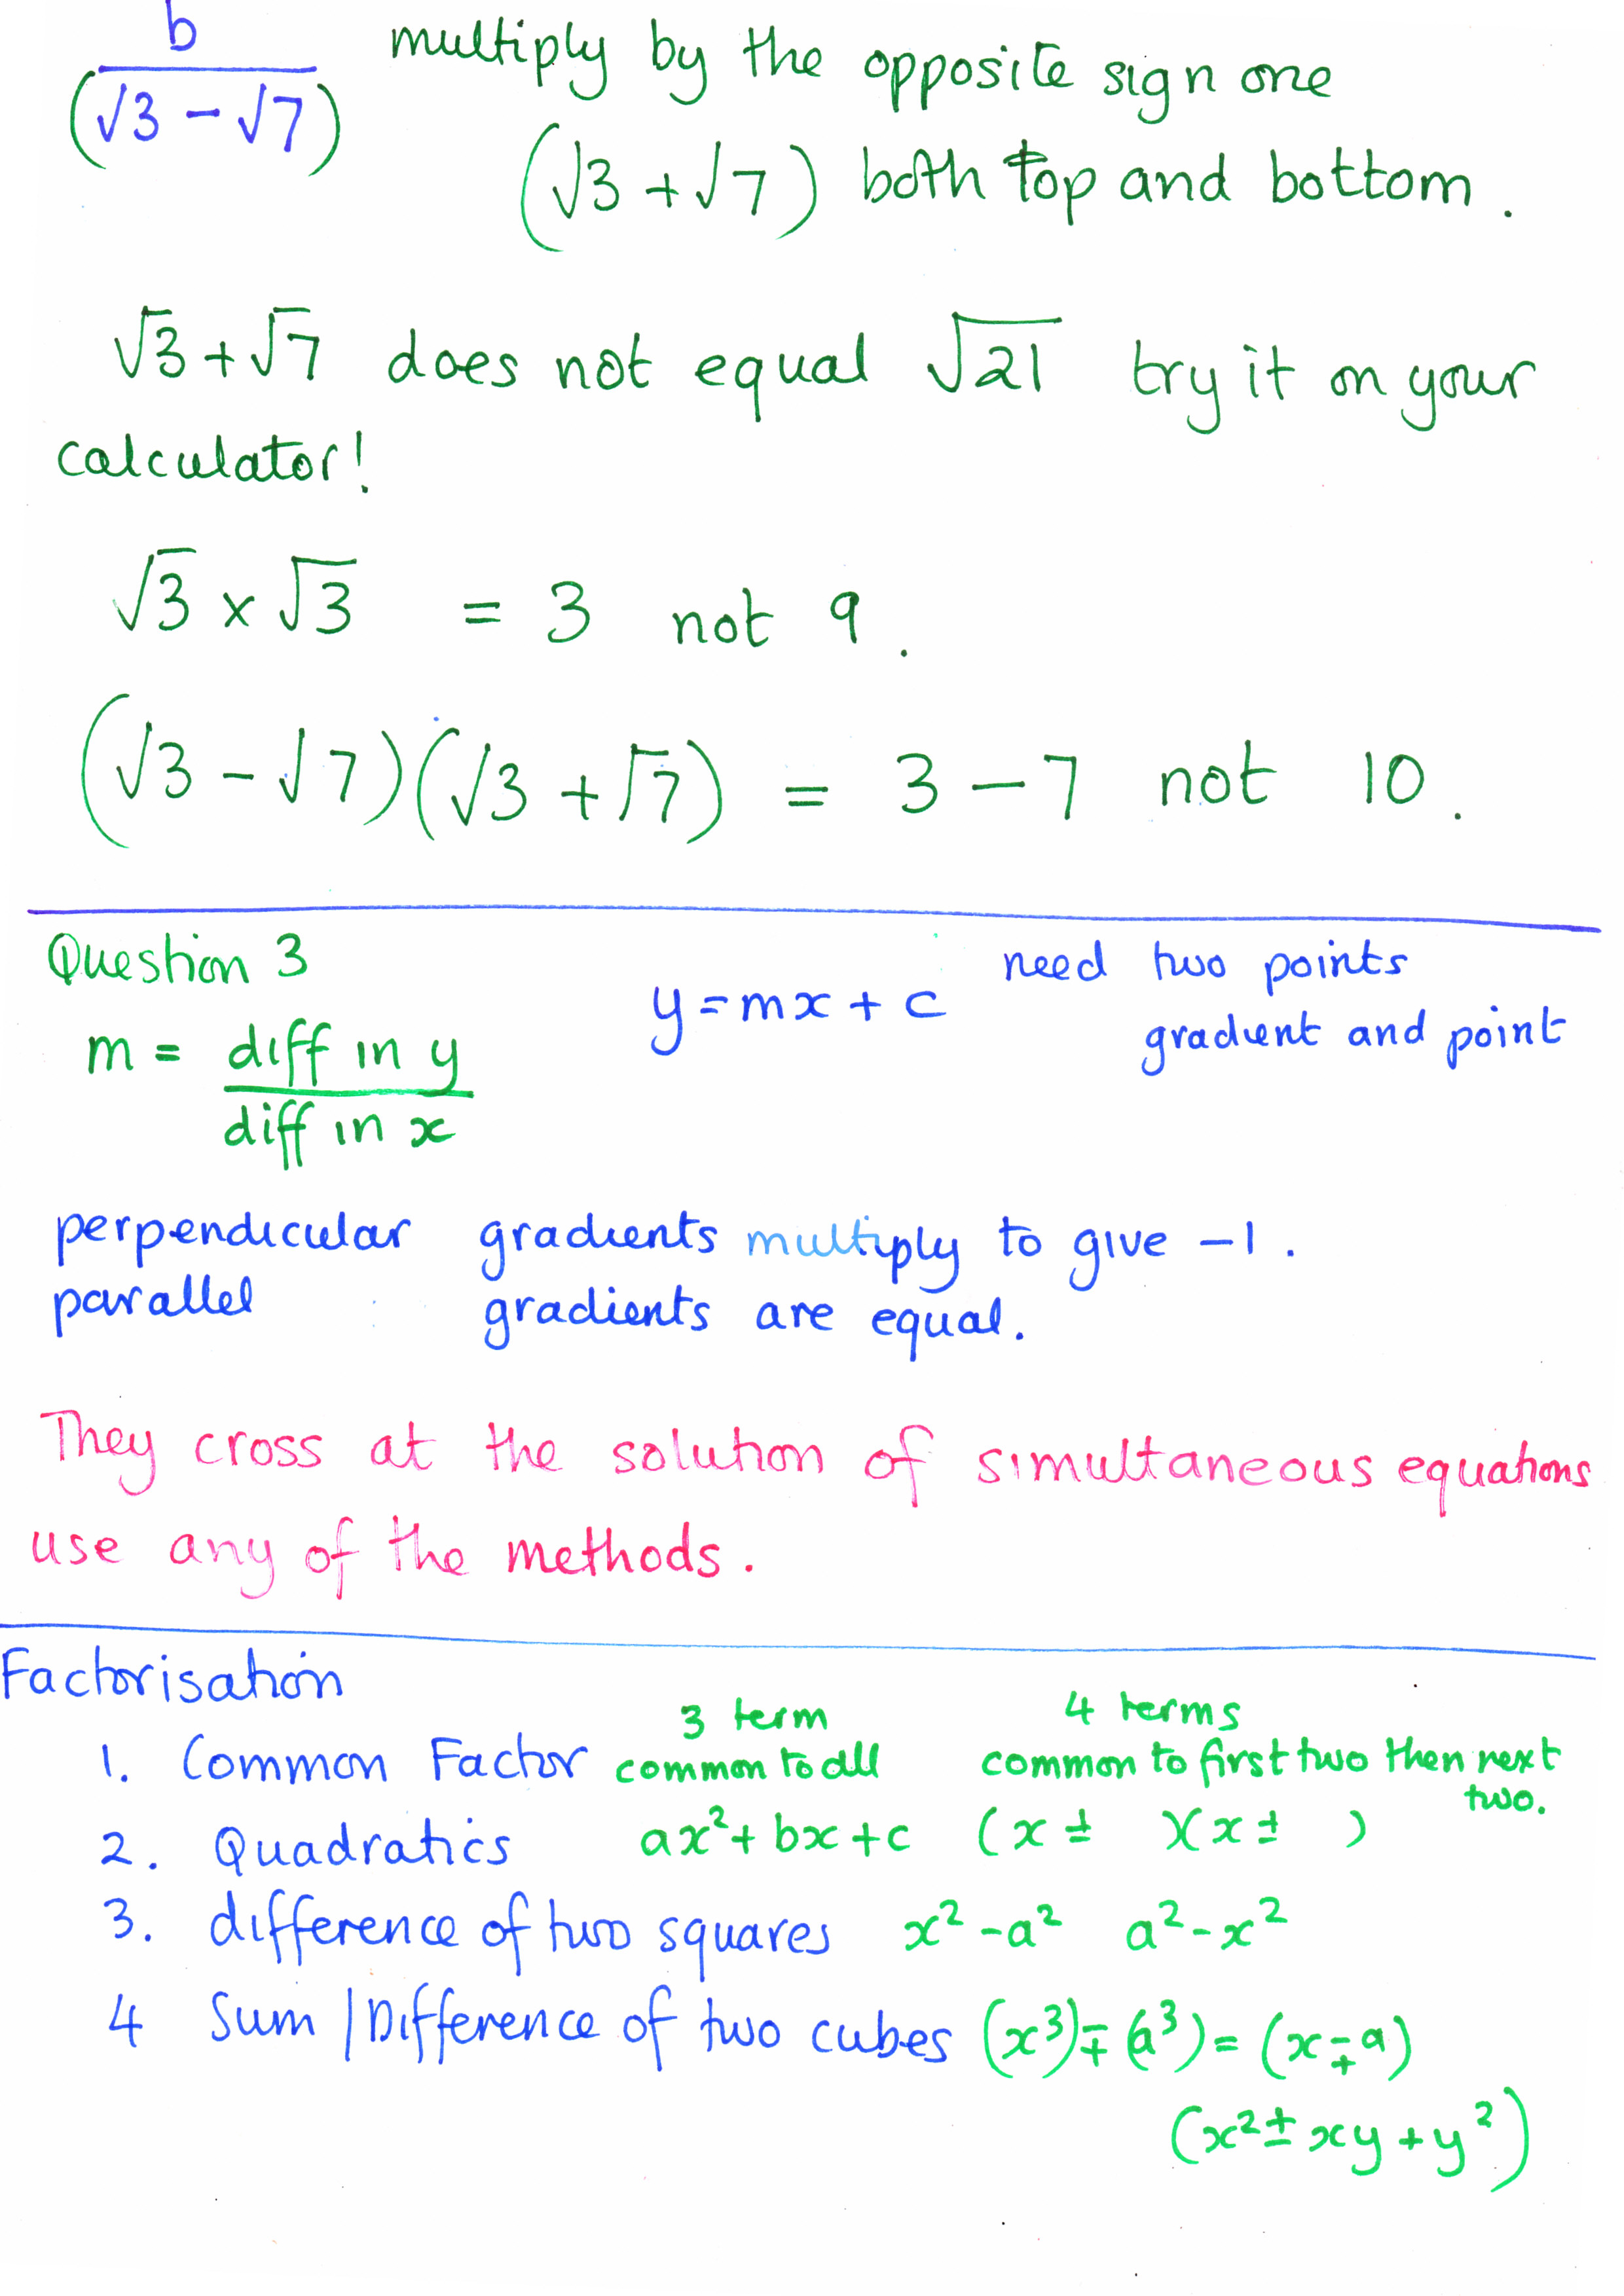 b
(√3 - √7)
multiply by the opposite sign one
(√3 + √7) both top and bottom.
√3 + √7 does not equal √21 try it on your
calculator!
√3 × √3 = 3 not 9.
(√3 - √7)(√3 + √7) = 3 - 7 not 10.
Question 3
y = mx + c
need two points
gradient and point
m = diff in y
diff in x
perpendicular gradients multiply to give -1.
parallel gradients are equal.
They cross at the solution of simultaneous equations
use any of the methods.
Factorisation
3 term
4 terms
1. Common Factor common to all common to first two then next
two.
2. Quadratics ax² + bx + c (x ± )(x ± )
3. difference of two squares x² - a² a² - x²
4 Sum | Difference of two cubes (x³) ∓ (a³) = (x ∓ a)
(x² ± xy + y²)